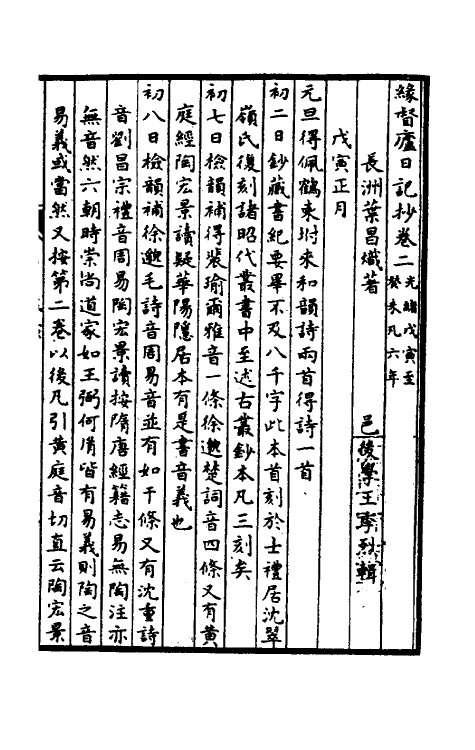 緣督廬日記抄卷二光緒戊寅至癸未凡六年
長洲葉昌熾著 邑後學王季烈輯
戊寅正月
元旦得佩鶴柬坿來和韻詩兩首得詩一首
初二日鈔藏書紀要畢不及八千字此本首刻於士禮居沈翠
嶺氏復刻諸昭代叢書中至述古叢鈔本凡三刻矣
初七日檢韻補得裴瑜爾雅音一條徐邈楚詞音四條又有黃
庭經陶宏景讀疑華陽隱居本有是書音義也
初八日檢韻補徐邈毛詩音周易音並有如干條又有沈重詩
音劉昌宗禮音周易陶宏景讀按隋唐經籍志易無陶注亦
無音然六朝時崇尚道家如王弼何胥皆有易義則陶之音
易義或當然又按第二卷以後凡引黃庭音切直云陶宏景